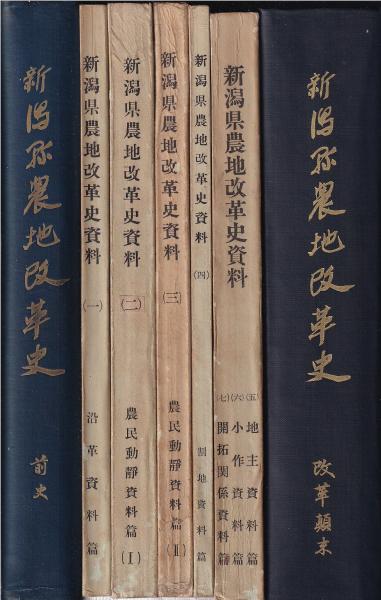 新潟県農地改革史
前史
新潟県農地改革史資料
(一)
沿革資料篇
新潟県農地改革史資料
(二)
農民動靜資料篇
(I)
新潟県農地改革史資料
(三)
農民動靜資料篇
(II)
新潟県農地改革史資料
(四)
割地資料篇
新潟県農地改革史資料
(五)地主資料篇
(六)小作資料篇
(七)開拓関係資料篇
新潟県農地改革史
改革顛末